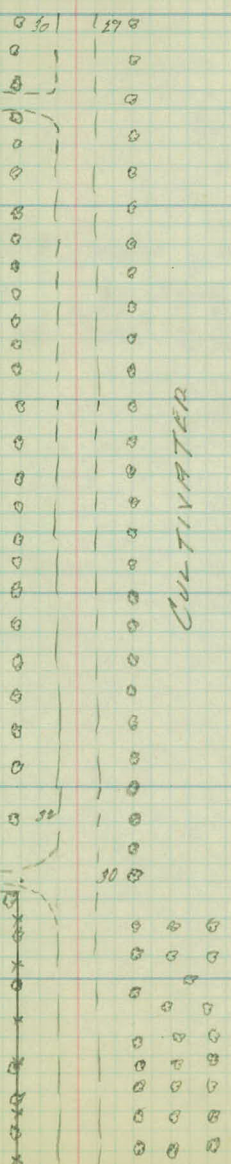 30 29
CULTIVATED
30